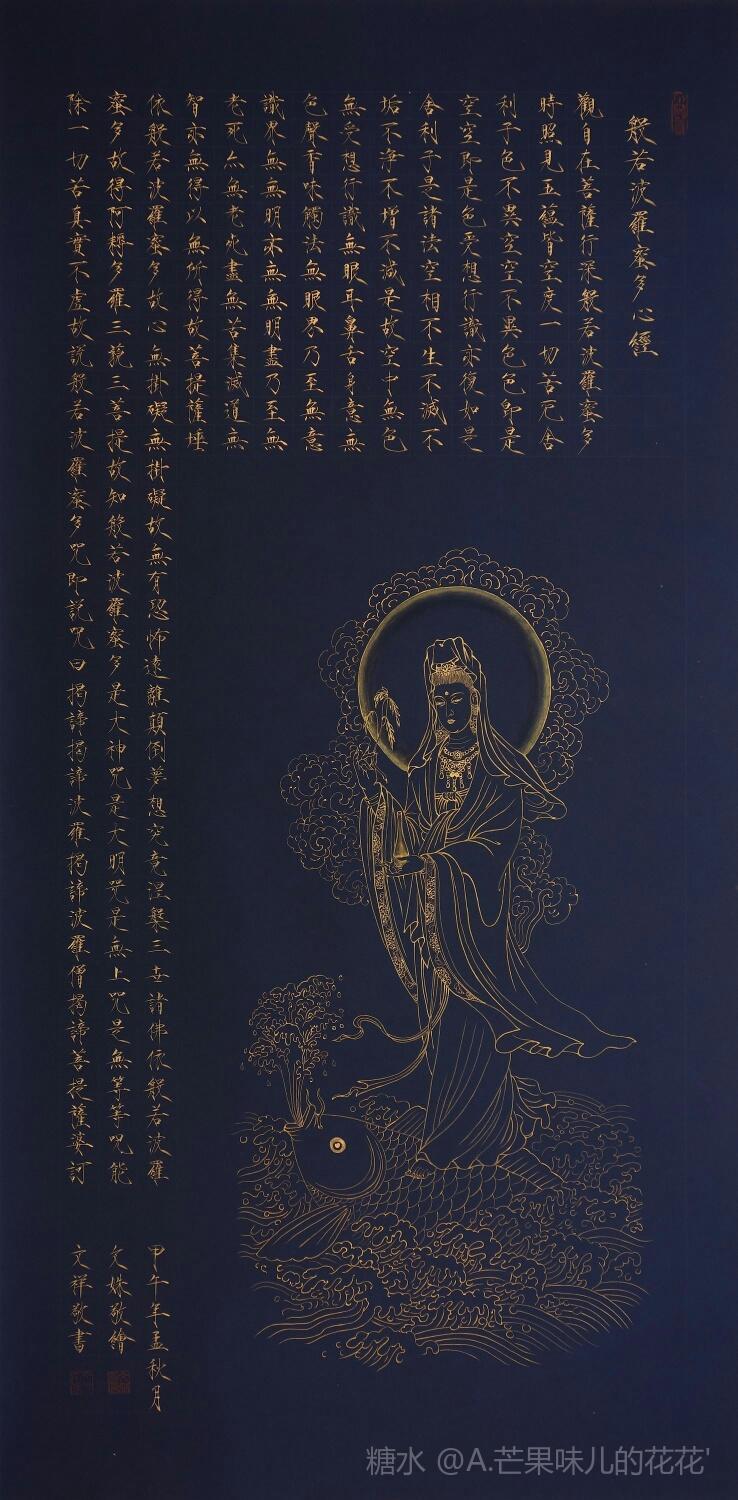 般若波羅蜜多心經
觀自在菩薩行深般若波羅蜜多
時照見五蘊皆空度一切苦厄舍
利子色不異空空不異色色即是
空空即是色受想行識亦復如是
舍利子是諸法空相不生不滅不
垢不淨不增不減是故空中無色
無受想行識無眼耳鼻舌身意無
色聲香味觸法無眼界乃至無意
識界無無明亦無無明盡乃至無
老死亦無老死盡無苦集滅道無
智亦無得以無所得故菩提薩埵
依般若波羅蜜多故心無掛礙無掛礙故無有恐怖遠離顛倒夢想究竟涅槃三世諸佛依般若波羅
蜜多故得阿耨多羅三藐三菩提故知般若波羅蜜多是大神咒是大明咒是無上咒是無等等咒能
除一切苦真實不虛故說般若波羅蜜多咒即說咒曰揭諦揭諦波羅揭諦波羅僧揭諦菩提薩婆訶
甲午年孟秋月
文姝敬繪
文祥敬書
糖水 @A.芒果味儿的花花'